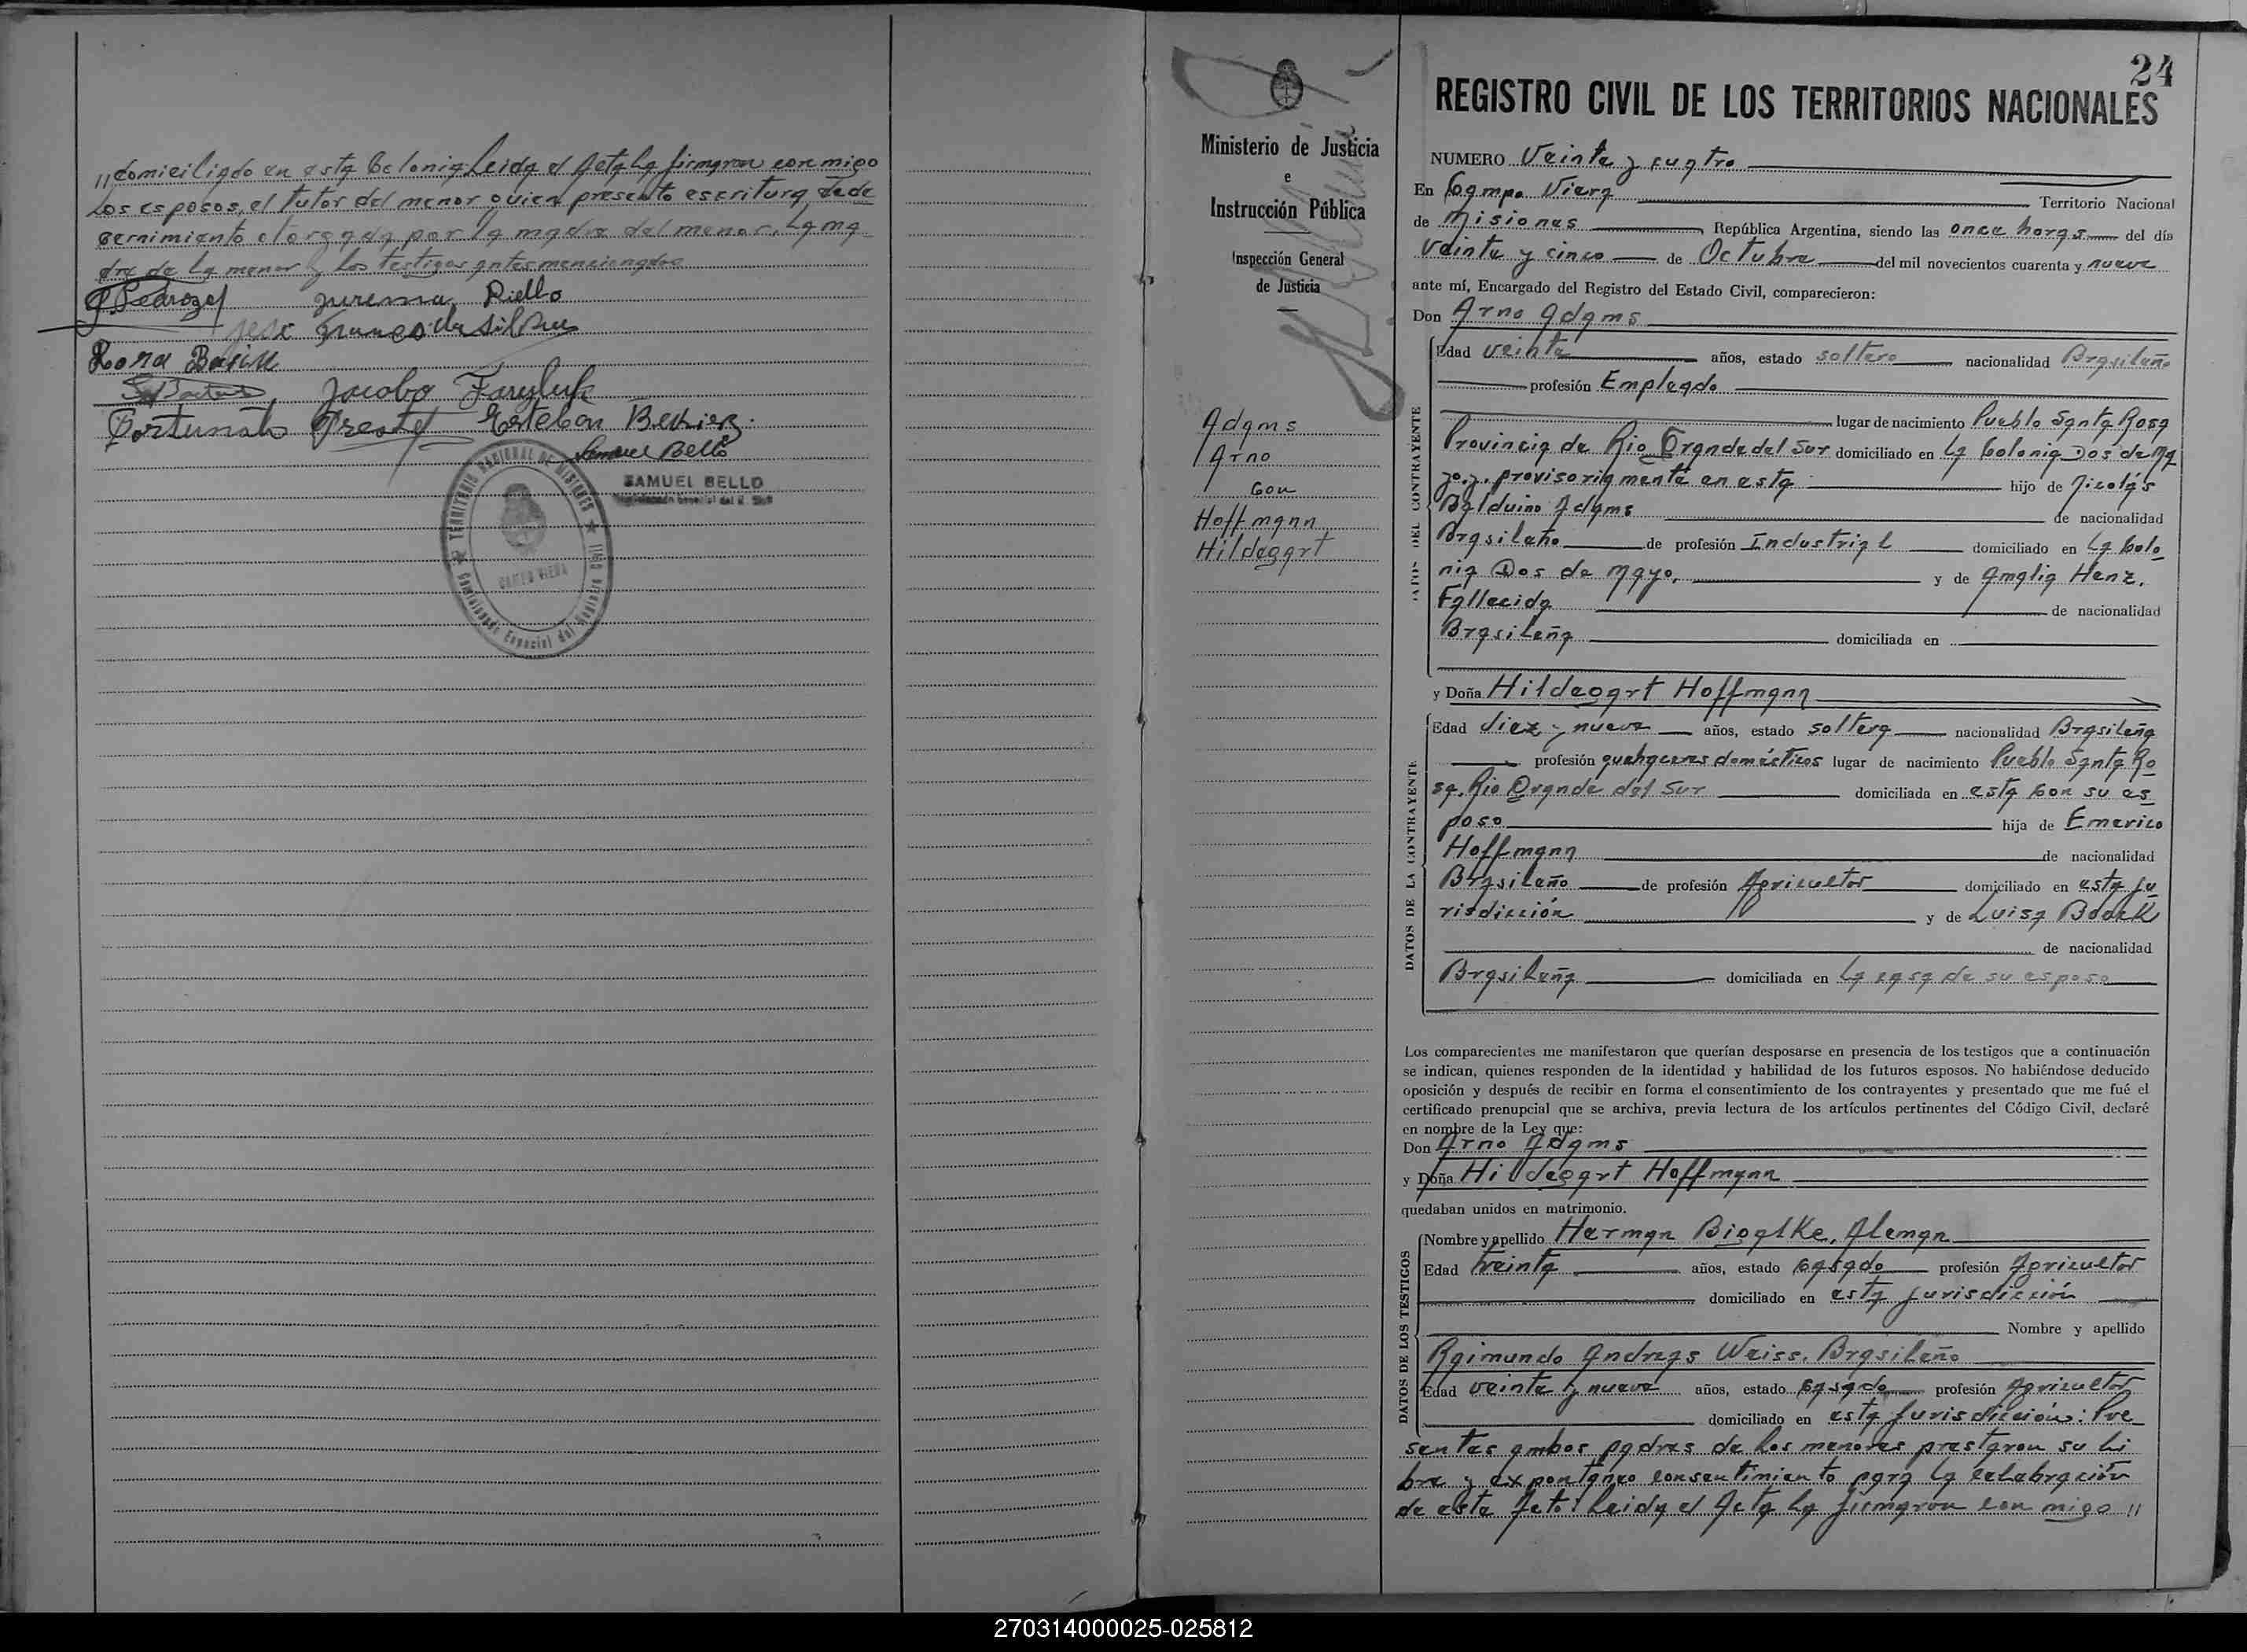 "domiciliado en esta Colonia Leida el Acta la firmaron con migo
los esposos, el tutor del menor quien presentó escritura de de
cernimiento otorgada por la madre del menor, la ma
dre de la menor y los testigos antes mencionados
Pedrozo Jurema Riello
Jose Franco da Silva
Rosa
Jacobo
Esteban
Samuel Bello
SAMUEL BELLO
TERRITORIO NACIONAL DE MISIONES
CAMPO VIERA
Comisionado Especial del Registro Civil
24
Ministerio de Justicia
e
Instrucción Pública
Inspección General
de Justicia
Adams
Arno
con
Hoffmann
Hildegart
REGISTRO CIVIL DE LOS TERRITORIOS NACIONALES
NUMERO Veinte y cuatro
En Campo Viera Territorio Nacional
de Misiones República Argentina, siendo las once horas del día
veinte y cinco de Octubre del mil novecientos cuarenta y nueve
ante mí, Encargado del Registro del Estado Civil, comparecieron:
Don Arno Adams
DATOS DEL CONTRAYENTE
Edad veinte años, estado soltero nacionalidad Brasileño
profesión Empleado
lugar de nacimiento Pueblo Santa Rosa
Provincia de Rio Grande del Sur domiciliado en la Colonia Dos de Ma
yo,y. provisoriamente en esta hijo de Nicolás
Balduino Adams de nacionalidad
Brasileño de profesión Industrial domiciliado en la Colo
nia Dos de Mayo, y de Amalia Henz,
Fallecida de nacionalidad
Brasileña domiciliada en
y Doña Hildegart Hoffmann
DATOS DE LA CONTRAYENTE
Edad diez y nueve años, estado soltera nacionalidad Brasileña
profesión quehaceres domésticos lugar de nacimiento Pueblo Santa Ro
sa, Rio Grande del Sur domiciliada en esta con su es
poso hija de Emerico
Hoffmann de nacionalidad
Brasileño de profesión Agricultor domiciliado en esta ju
risdicción y de Luisa
de nacionalidad
Brasileña domiciliada en la casa de su esposo
Los comparecientes me manifestaron que querían desposarse en presencia de los testigos que a continuación
se indican, quienes responden de la identidad y habilidad de los futuros esposos. No habiéndose deducido
oposición y después de recibir en forma el consentimiento de los contrayentes y presentado que me fué el
certificado prenupcial que se archiva, previa lectura de los artículos pertinentes del Código Civil, declaré
en nombre de la Ley que:
Don Arno Adams
y Doña Hildegart Hoffmann
quedaban unidos en matrimonio.
DATOS DE LOS TESTIGOS
Nombre y apellido Herman Bigalke, Aleman
Edad treinta años, estado casado profesión Agricultor
domiciliado en esta jurisdicción
Nombre y apellido
Raimundo Andreas Weiss, Brasileño
Edad veinte y nueve años, estado casado profesión Agricultor
domiciliado en esta jurisdicción: Pre
sentes ambos padres de los menores prestaron su li
bre y expontáneo consentimiento para la celebración
de este Acto: Leida el Acta la firmaron con migo "
270314000025-025812